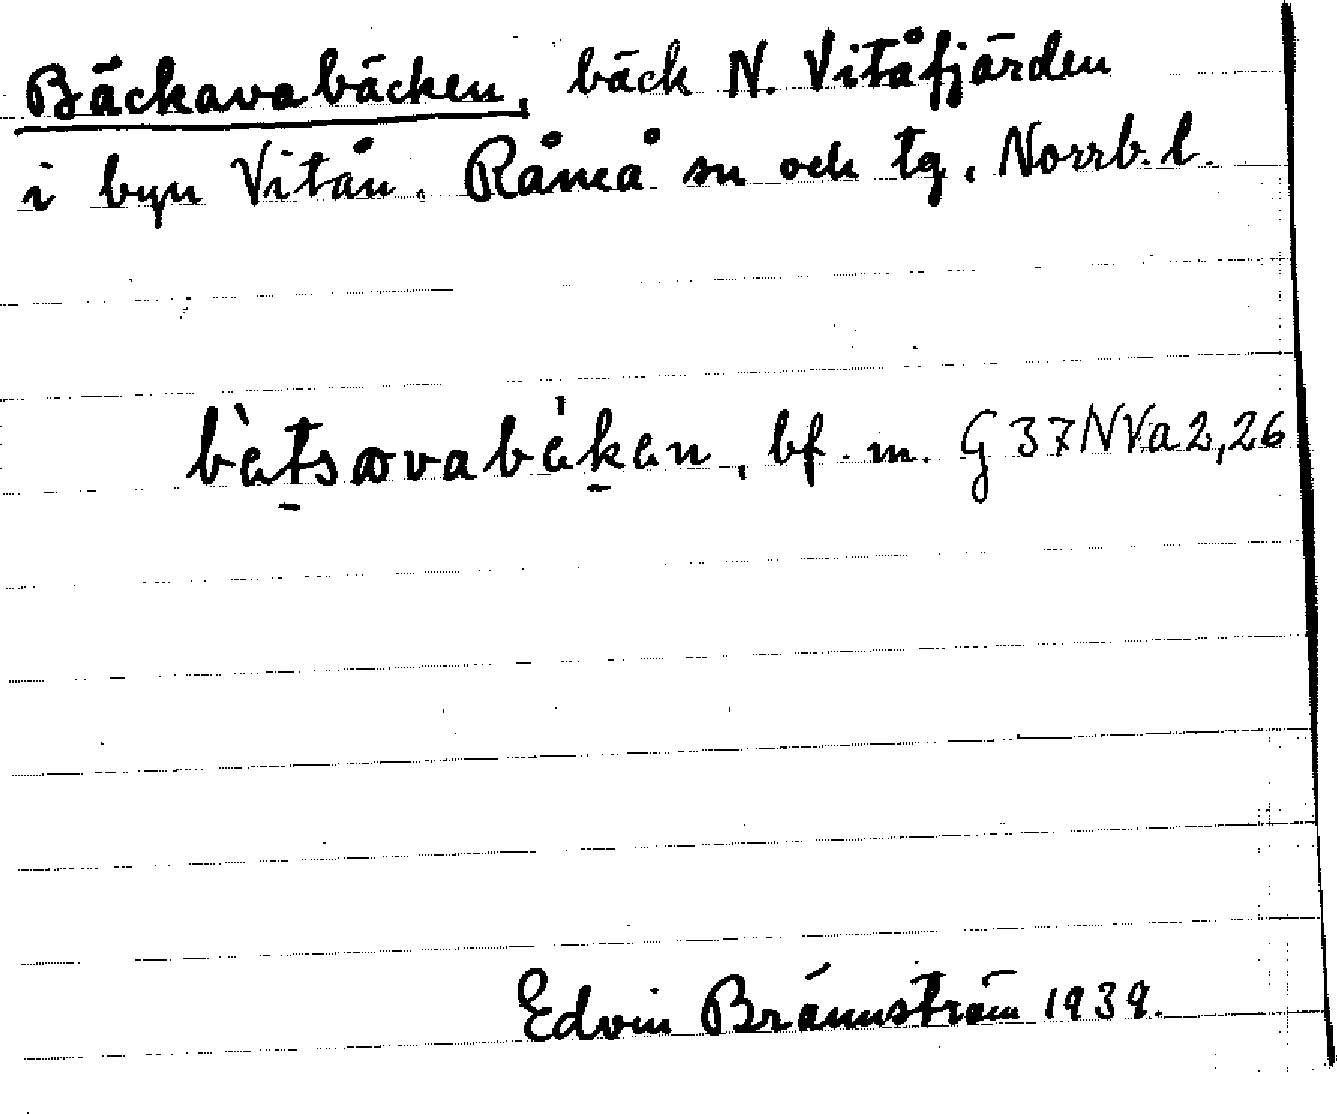 Bäckavabäcken, bäck N. Vitåfjärden
i byn Vitån. Råneå sn och tg. Norrb. l.
bf. m. G 37 NVa 2,26
Edvin Brännström 1939.